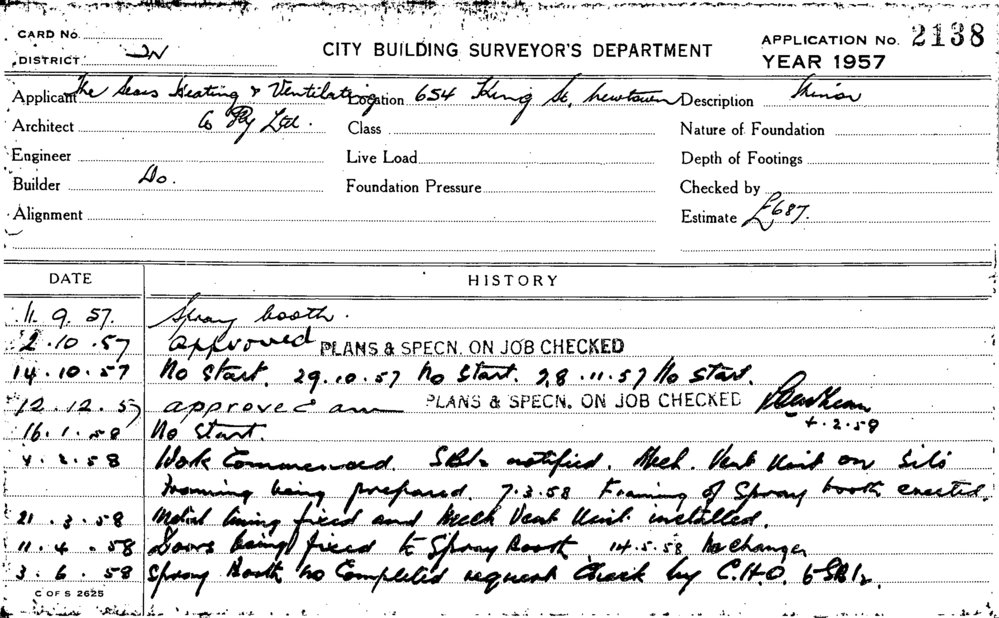 CARD No.
DISTRICT
CITY BUILDING SURVEYOR'S DEPARTMENT
APPLICATION No. 2138
YEAR 1957
Applicant The Sears Heating & Ventilating Location 654 King St, Newtown Description Minor
Architect Co Pty Ltd. Class Nature of Foundation
Engineer Live Load Depth of Footings
Builder Do. Foundation Pressure Checked by
Alignment Estimate £687.
DATE HISTORY
11. 9. 57. Spray booth.
2.10.57 approved PLANS & SPECN. ON JOB CHECKED
14.10.57 No Start. 29.10.57 No Start. 28.11.57 No Start.
12.12.57 approved PLANS & SPECN. ON JOB CHECKED
4.2.58
16.1.58 No Start.
4.2.58 Work Commenced. notified. Mech. Vent Unit on Site
Framing being prepared. 7.3.58 Framing of Spray booth erected.
21.3.58 Metal lining fixed and Mech Vent Unit installed.
11.4.58 Doors being fixed to Spray Booth 14.5.58 No Change
3.6.58 Spray Booth Completed request Check by C.H.O.
C OF S 2625